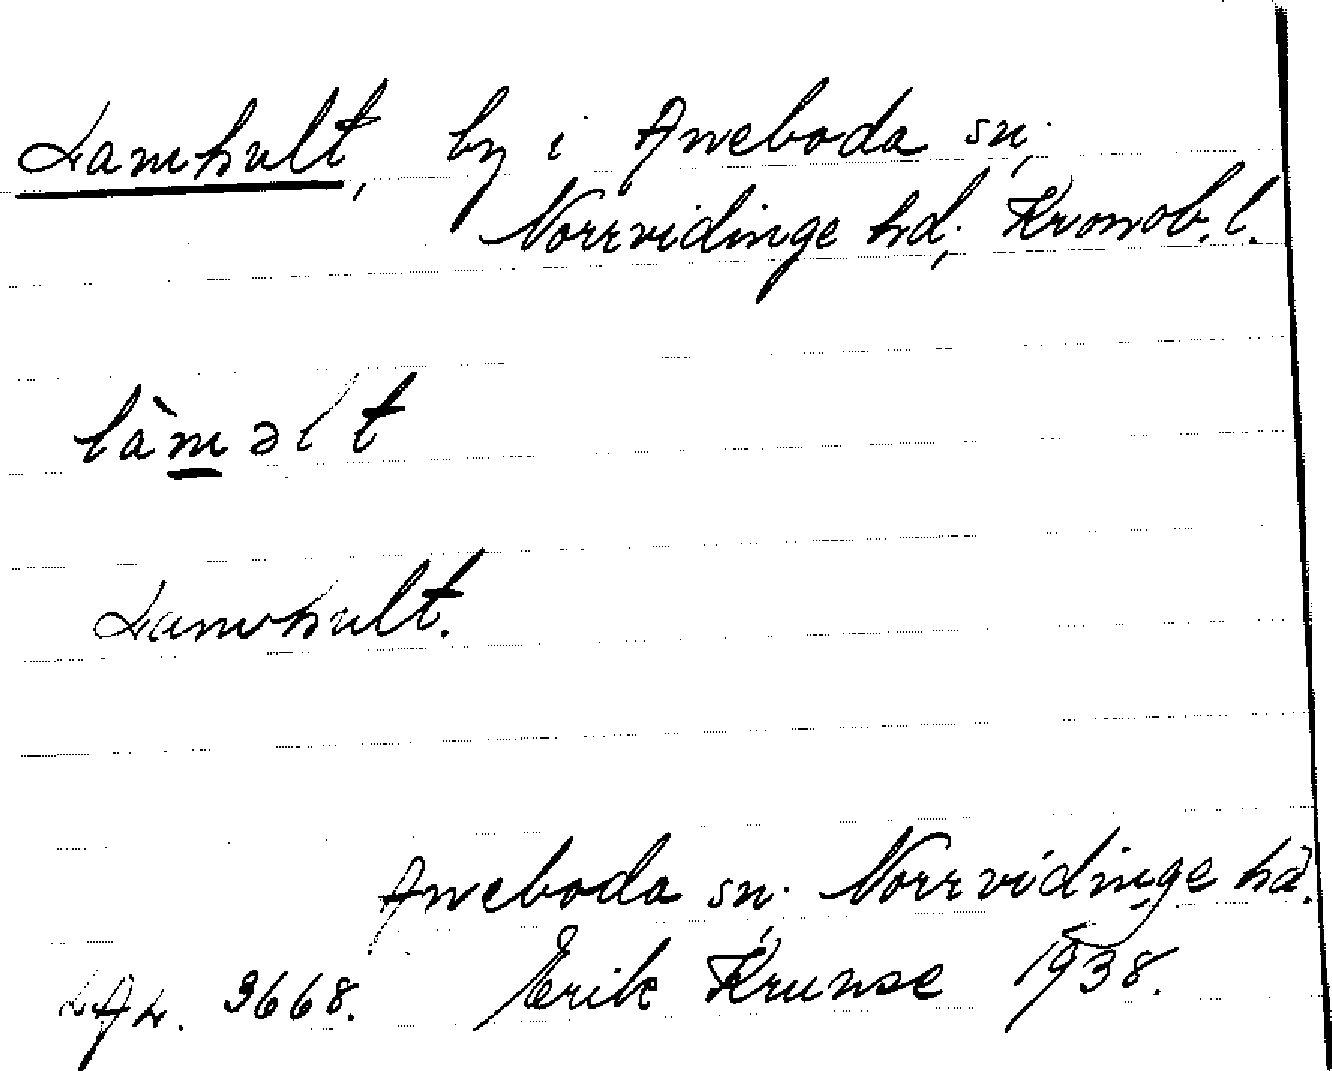 Lamhult, by i Aneboda sn,
Norrvidinge hd, Kronob. l.
làməlt
Lamhult.
Aneboda sn, Norrvidinge hd.
LAL. 3668. Erik Krunse 1938.